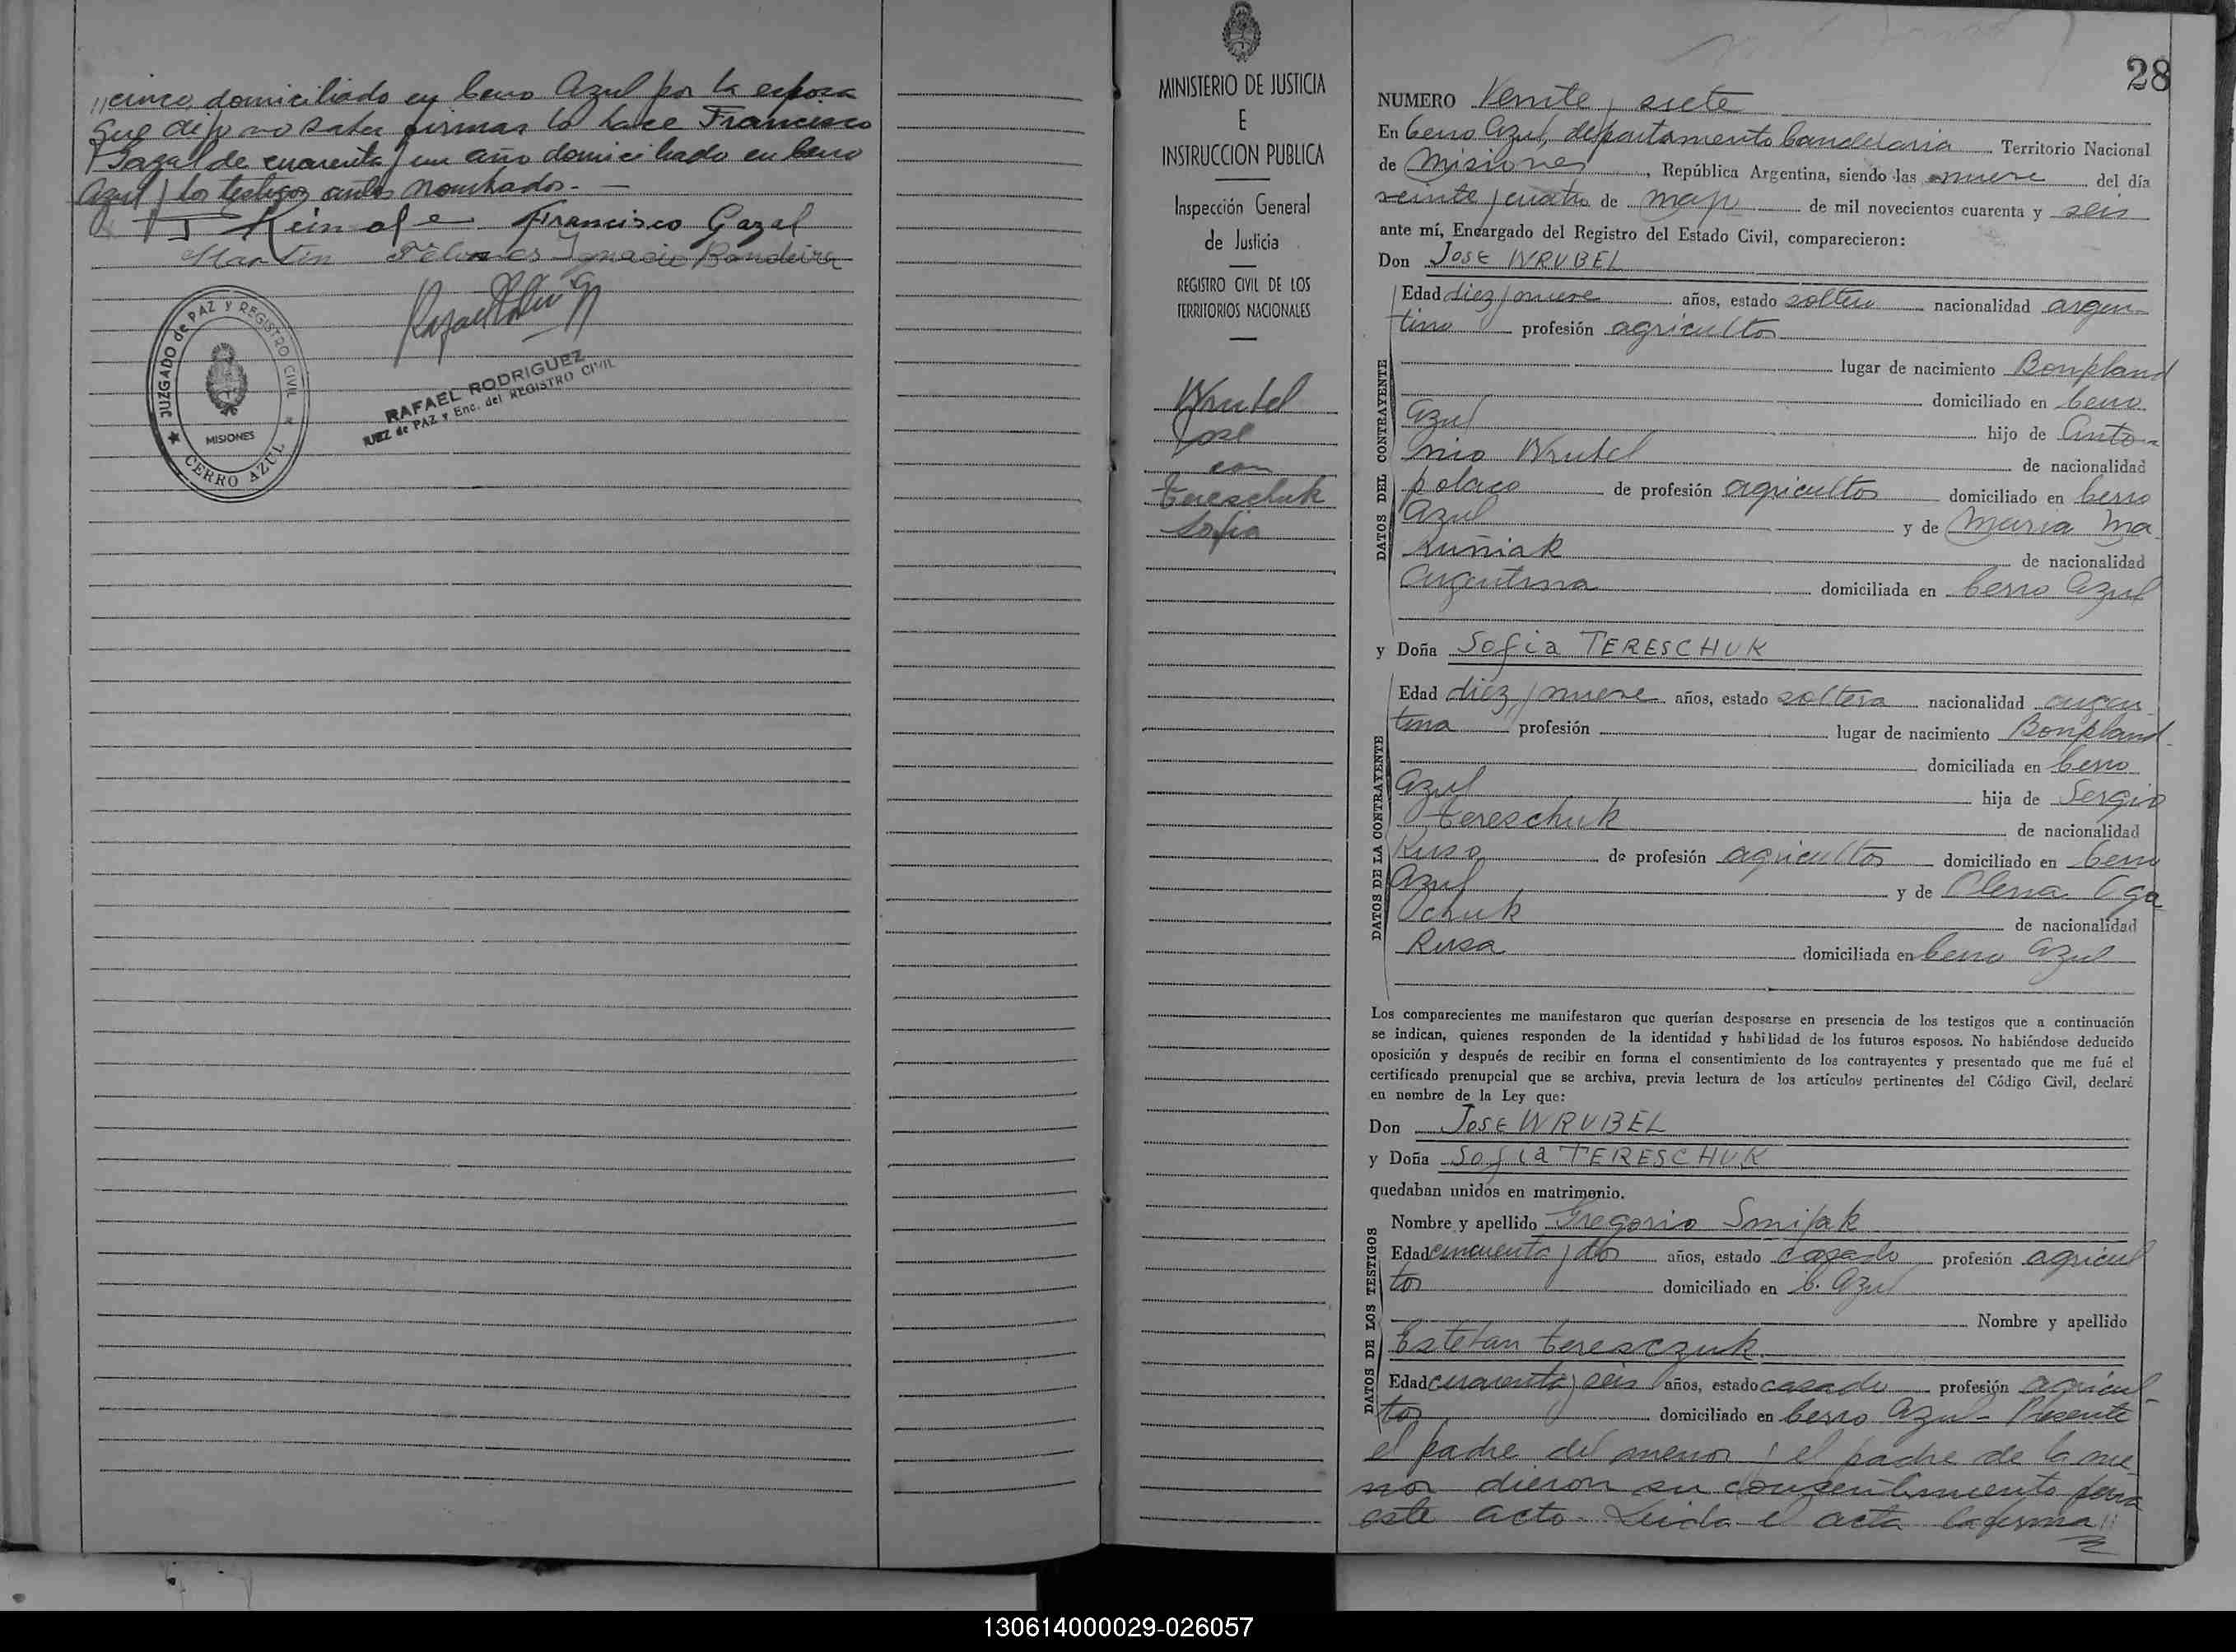 //cinco domiciliado en Cerro Azul por la esposa
que dijo no saber firmar lo hace Francisco
Gazal de cuarenta y un año domiciliado en Cerro
Azul y los testigos antes nombrados.-
Francisco Gazal
Martin Ignacio Bandeira
JUZGADO de PAZ y REGISTRO CIVIL
MISIONES
CERRO AZUL
RAFAEL RODRIGUEZ
JUEZ de PAZ y Enc. del REGISTRO CIVIL
MINISTERIO DE JUSTICIA
E
INSTRUCCION PUBLICA
Inspección General
de Justicia
REGISTRO CIVIL DE LOS
TERRITORIOS NACIONALES
Wrubel
José
con
Tereschuk
Sofia
28
NUMERO Veinte y siete
En Cerro Azul, departamento Candelaria Territorio Nacional
de Misiones, República Argentina, siendo las nueve del día
veinte y cuatro de mayo de mil novecientos cuarenta y seis
ante mí, Encargado del Registro del Estado Civil, comparecieron:
Don Jose WRUBEL
DATOS DEL CONTRAYENTE
Edad diez y nueve años, estado soltero nacionalidad argen-
tino profesión agricultor
lugar de nacimiento Bonpland
domiciliado en Cerro
Azul hijo de Anto-
nio Wrubel de nacionalidad
polaco de profesión agricultor domiciliado en Cerro
Azul y de Maria Ma
ruñiak de nacionalidad
Argentina domiciliada en Cerro Azul
y Doña Sofia TERESCHUK
DATOS DE LA CONTRAYENTE
Edad diez y nueve años, estado soltera nacionalidad argen-
tina profesión lugar de nacimiento Bonpland
domiciliada en Cerro
Azul hija de Sergio
Tereschuk de nacionalidad
Ruso de profesión agricultor domiciliado en Cerro
Azul y de Olena
de nacionalidad
Rusa domiciliada en Cerro Azul
Los comparecientes me manifestaron que querían desposarse en presencia de los testigos que a continuación
se indican, quienes responden de la identidad y habilidad de los futuros esposos. No habiéndose deducido
oposición y después de recibir en forma el consentimiento de los contrayentes y presentado que me fué el
certificado prenupcial que se archiva, previa lectura de los artículos pertinentes del Código Civil, declaré
en nombre de la Ley que:
Don Jose WRUBEL
y Doña Sofia TERESCHUK
quedaban unidos en matrimonio.
DATOS DE LOS TESTIGOS
Nombre y apellido Gregorio
Edad cincuenta y dos años, estado casado profesión agricul
tor domiciliado en C. Azul
Nombre y apellido
Esteban Teresczuk.
Edad cuarenta y seis años, estado casado profesión agricul-
tor domiciliado en Cerro Azul - Presente
el padre del menor y el padre de la me
nor dieron su consentimiento para
este acto. Leida el acta la firma//
130614000029-026057